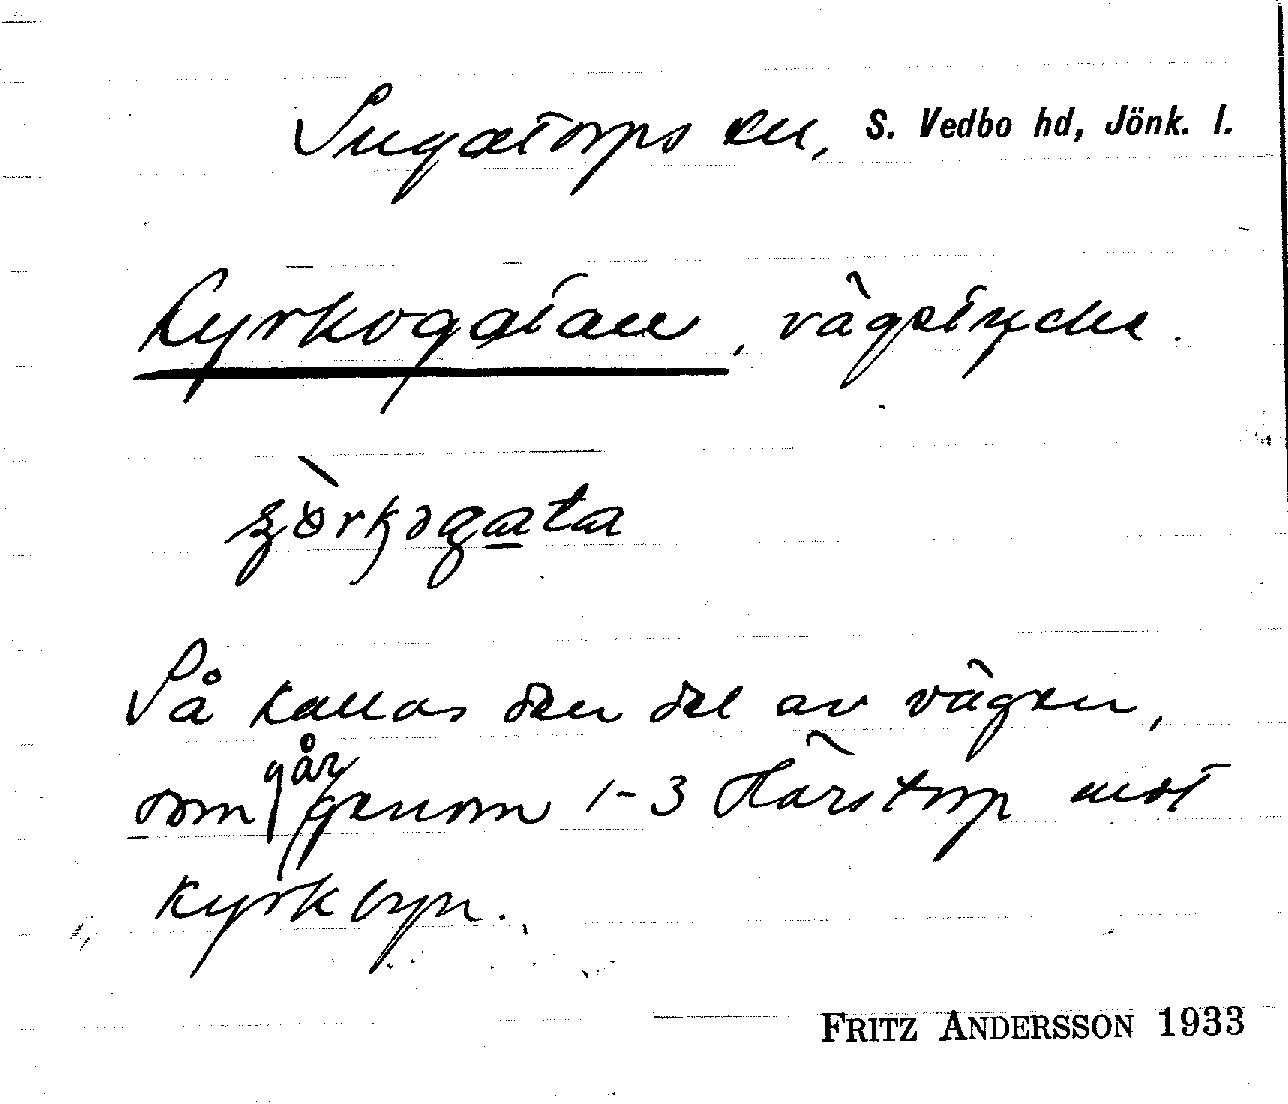 Ingatorps sn, S. Vedbo hd, Jönk. l.
Kyrkogatan, vägstycke.
Så kallas den del av vägen,
som går genom 1-3 Hårstorp mot
kyrkbyn.
FRITZ ANDERSSON 1933